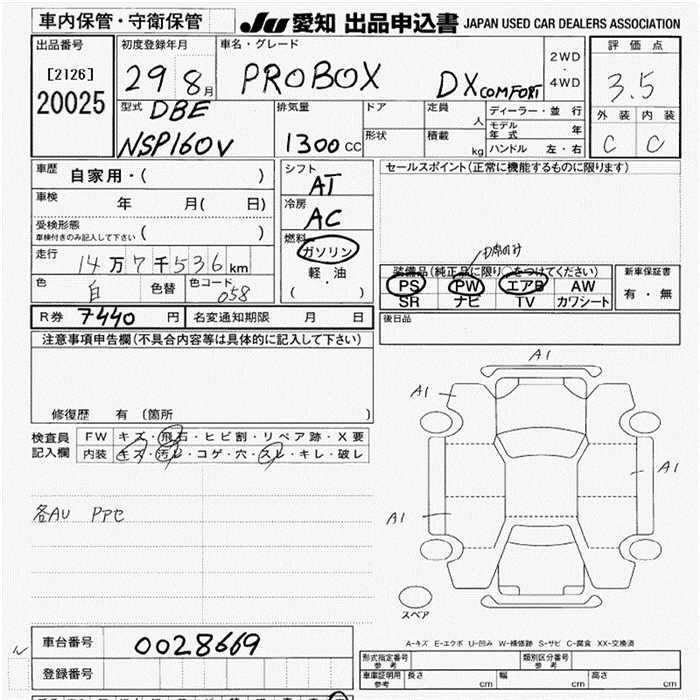 車内保管・守衛保管
JU 愛知 出品申込書 JAPAN USED CAR DEALERS ASSOCIATION
出品番号
[2126]
20025
初度登録年月
29 8月
車名・グレード
PROBOX DX COMFORT
2WD
・
4WD
評価点
3.5
外装 内装
C C
型式 DBE
NSP160V
排気量
1300 cc
ドア
形状
定員
人
積載
kg
ディーラー・並行
モデル年式 年
ハンドル 左・右
車歴 自家用・( )
車検 年 月( 日)
受検形態
車検付きのみ記入して下さい ( )
走行 14万7千536km
色 白 色替 色コード 058
シフト
AT
冷房
AC
燃料
ガソリン
軽油
・
( )
セールスポイント(正常に機能するものに限ります)
装備品(純正品に限り○をつけてください)
PS PW エアB AW
SR ナビ TV カワシート
新車保証書
有・無
R券 7440 円 名変通知期限 月 日
後日品
注意事項申告欄(不具合内容等は具体的に記入して下さい)
修復歴 有 (箇所 )
検査員
記入欄
FW キズ・飛石・ヒビ割・リペア跡・X要
内装 キズ・汚レ・コゲ・穴・スレ・キレ・破レ
各AU
A1
A1
A1
A1
スペア
車台番号 0028669
登録番号
A-キズ E-エクボ U-凹み W-補修跡 S-サビ C-腐食 XX-交換済
形式指定番号
参考
類別区分番号
参考
車庫証明用
参考
長さ cm 幅 cm 高さ cm